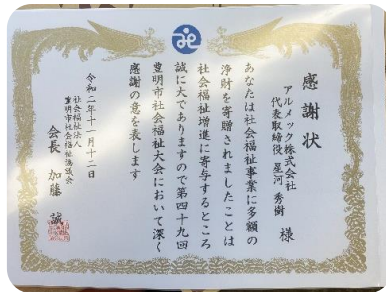 感謝状
アルメック株式会社
代表取締役 星河 秀樹 様
あなたは社会福祉事業に多額の
浄財を寄贈されましたことは
社会福祉増進に寄与するところ
誠に大でありますので第四十九回
豊明市社会福祉大会において深く
感謝の意を表します
令和二年十一月十二日
社会福祉法人
豊明市社会福祉協議会
会長 加藤 誠